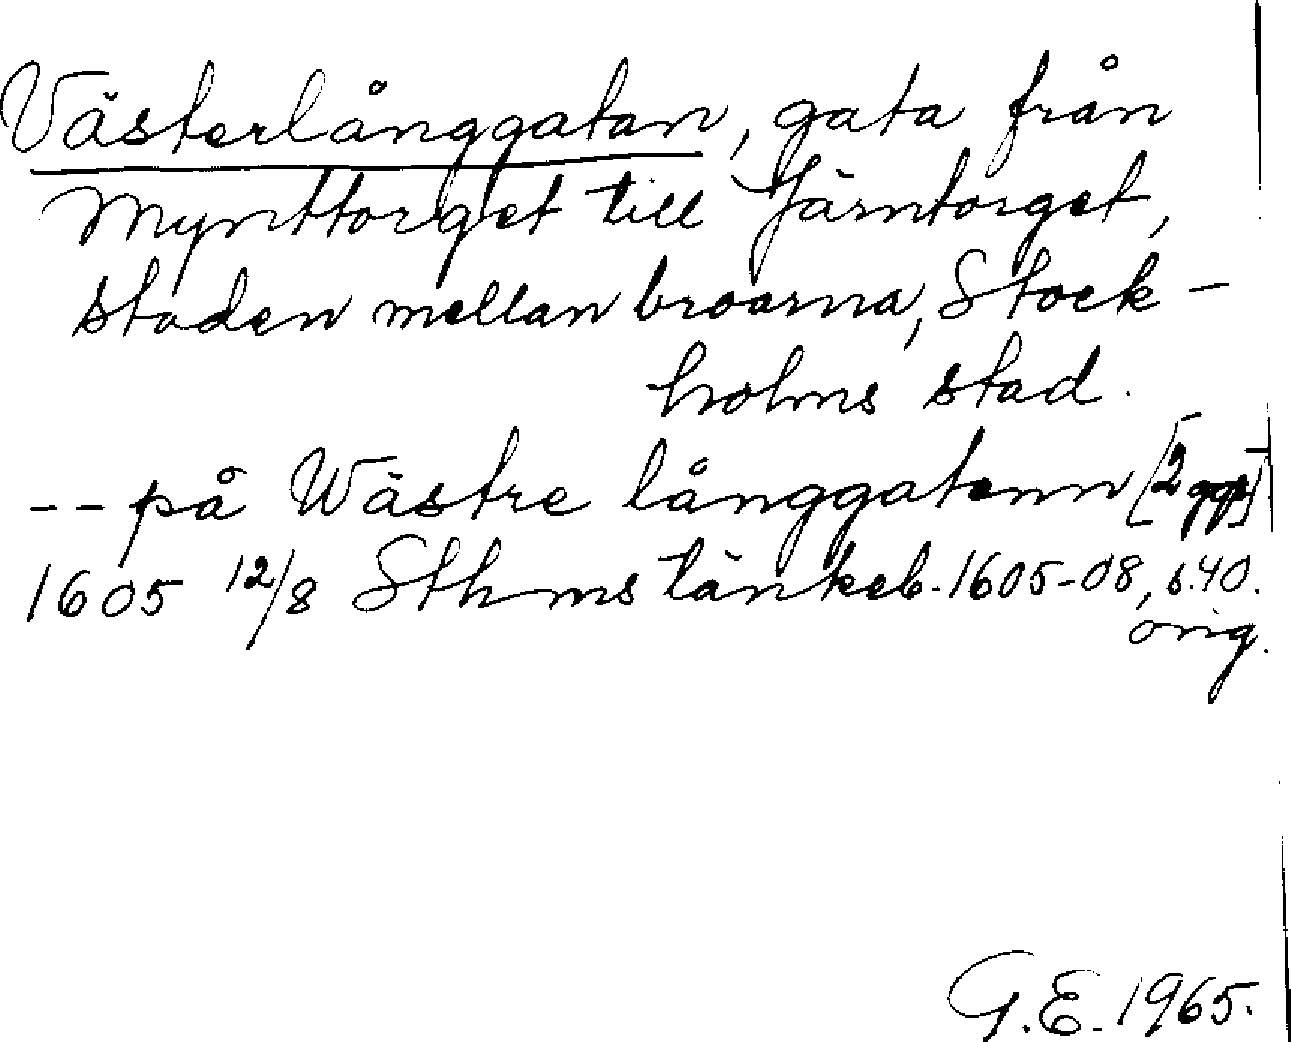 Västerlånggatan, gata från
Mynttorget till Järntorget,
staden mellan broarna, Stock-
holms stad.
-- på Wästre långgatenn [2 ggr]
1605 12/8 Sthms tänkeb. 1605-08, s. 40.
orig.
G.E. 1965.